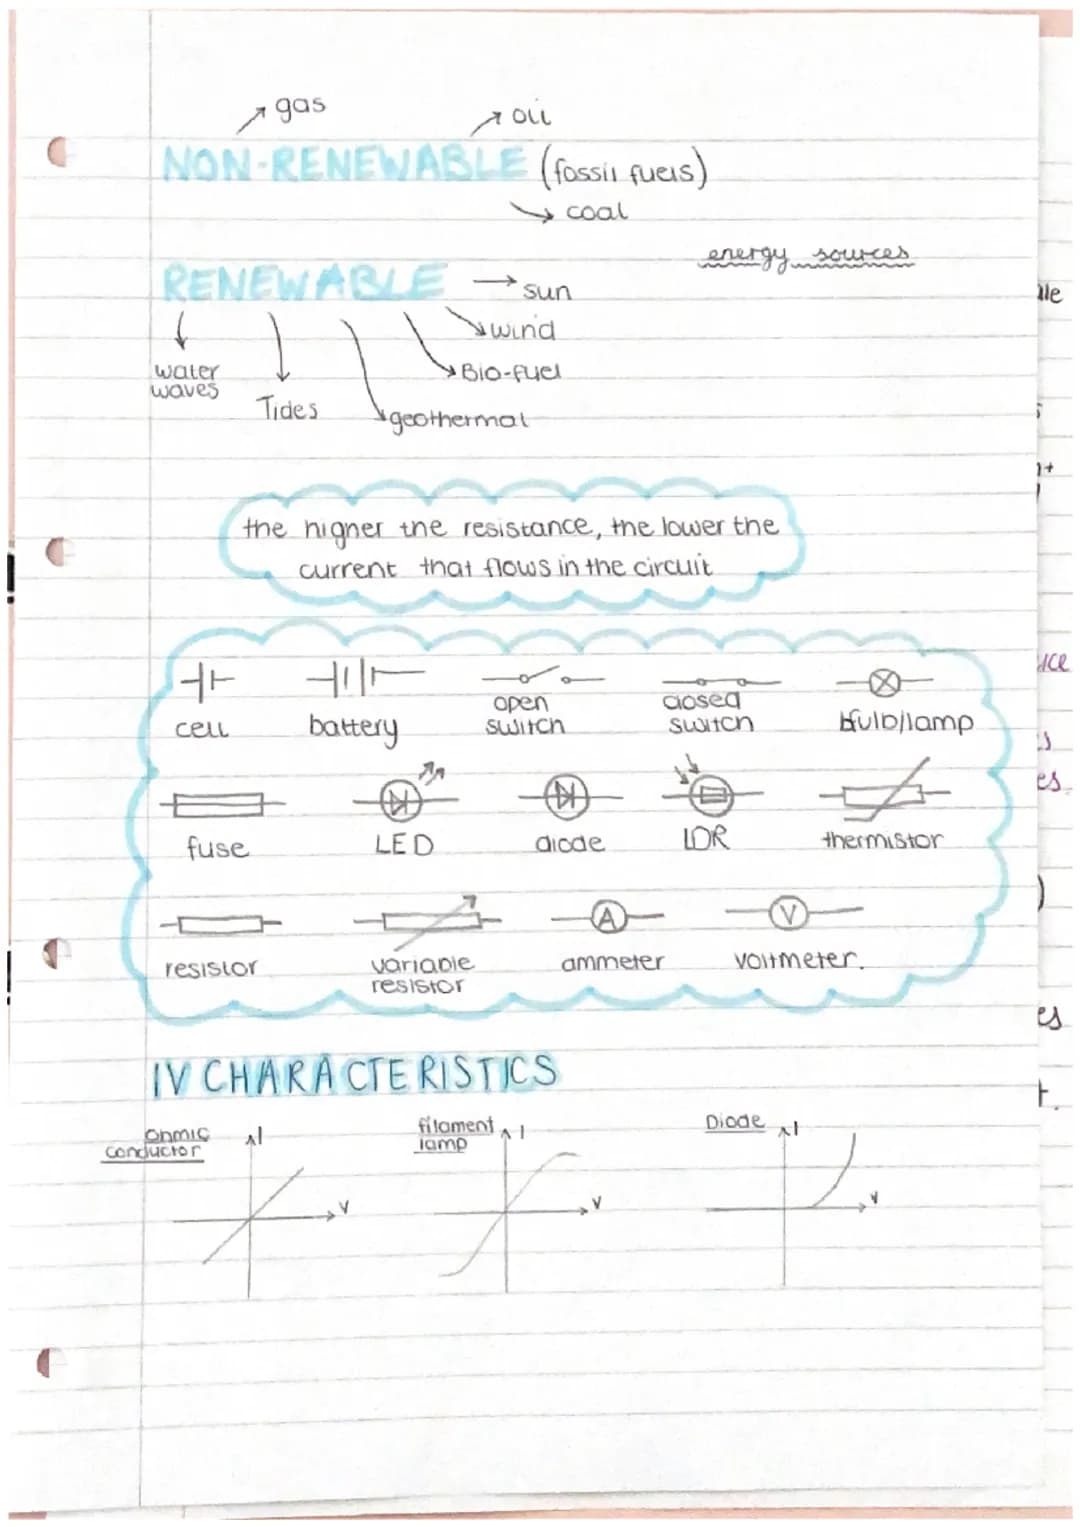 gas
oil
NON-RENEWABLE (fossil fuels)
coal
energy sources
RENEWABLE
sun
wind
water
waves
Bio-fuel
Tides
geothermal
the higher the resistance, the lower the
current that flows in the circuit
cell
battery
open
switch
closed
switch
bulb/lamp
fuse
LED
diode
LDR
thermistor
A
V
resistor
variable
resistor
ammeter
voltmeter.
IV CHARACTERISTICS
Ohmic
conductor
I
V
filament
lamp
I
V
Diode
I
V